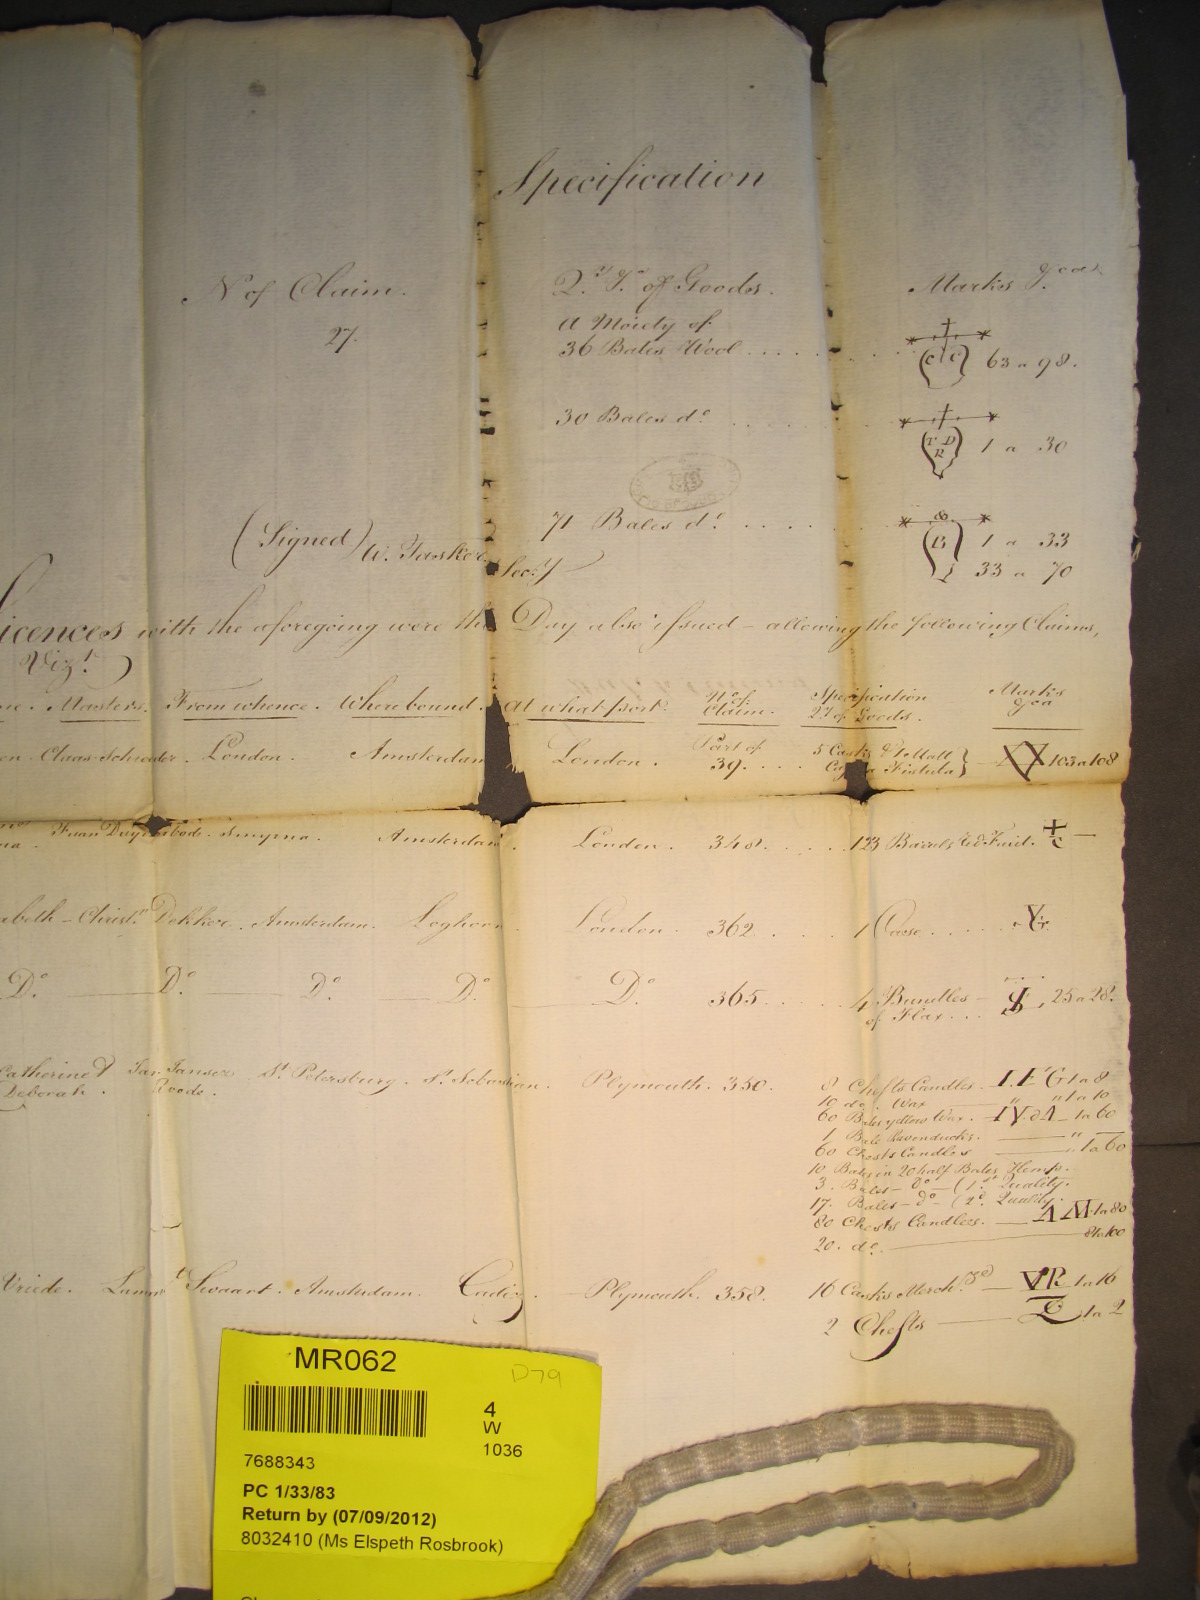 Specification
No of Claim. Qy. To. of Goods. Marks &ca
27. A Moiety of
36 Bales Wool ........ C C 63 a 98.
30 Bales do. .... T D R 1 a 30
71 Bales do. .... & B 1 a 33
(Signed) W. Tasker Secy 33 a 70
icences with the aforegoing were this Day also issued - allowing the following Claims,
Vizt.
Masters. From whence. Where bound. At what port. No. of Claim. Specification Qy of Goods. Marks &ca
Claas Schreuder. London. Amsterdam London. Part of 39. .... 5 Casks Fistula } 103 a 108
Smyrna. Amsterdam. London. 348. .... 123 Barrels Fruit. C —
abeth - Christn Dekker. Amsterdam. Leghorn. London. 362 .... 1 Case .....
Do. — Do. — Do. — Do. — Do. 365 .... 4 Bundles — 25 a 28.
of Flax ...
Catherine & Jan Jansez St. Petersburg. St. Sebastian. Plymouth. 350. 8 Chests Candles. I.E.G 1 a 8
Deborah. Roode. 10 do. Wax — " " 1 a 10
60 Bales yellow Wax. — 1 a 60
1 Bale Ravenducks. — "
60 Chests Candles — " 1 a 60
10 Bales in 20 half Bales Hemp.
3. Bales — do — (1st. Quality.
17. Bales — do — (2d. Quality.
80 Chests Candles. — AM 1 a 80
20. do. — 81 a 100
Vriede. Lammt Swaart. Amsterdam. Cadiz. — Plymouth. 358. 16 Casks Merchze — VR 1 a 16
2 Chests — 1 a 2
MR062
D79
4
W
1036
7688343
PC 1/33/83
Return by (07/09/2012)
8032410 (Ms Elspeth Rosbrook)